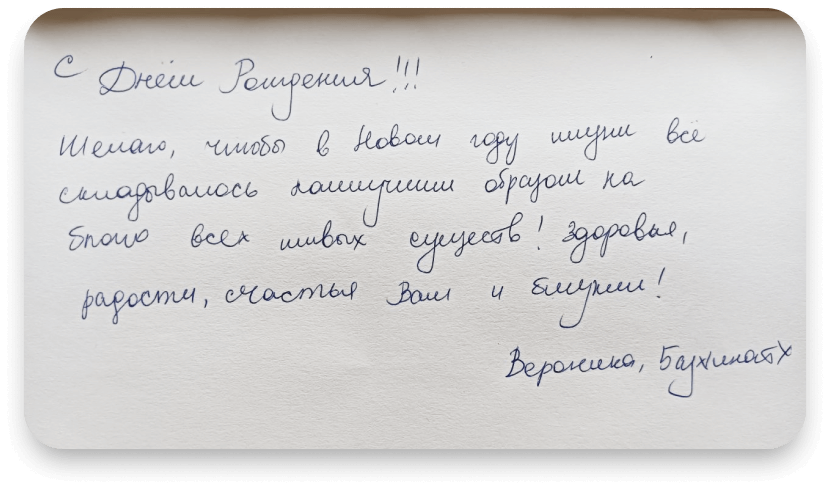 С Днём Рождения!!!
Желаю, чтобы в Новом году жизни всё
складывалось наилучшим образом на
благо всех живых существ! Здоровья,
радости, счастья Вам и близким!
Вероника,